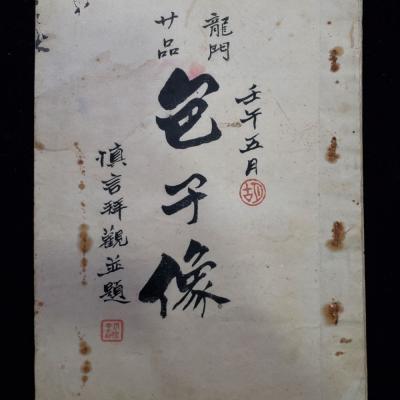 龍門
廿品
邑子像
壬午五月
胡
慎言拜觀並題